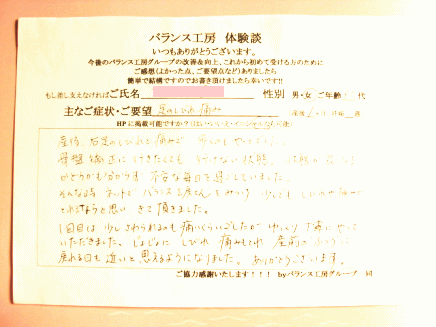 バランス工房 体験談
いつもありがとうございます。
今後のバランス工房グループの改善&向上、これから初めて受ける方のために
ご感想(よかった点、ご要望点など)ありましたら
簡単で結構ですのでお書き頂けましたら幸いです!!
もし差し支えなければご氏名 性別 男・女 ご年齢 代
主なご症状・ご要望 足のしびれ 痛み
HPに掲載可能ですか?(はい・いいえ・イニシャルなら可能)
産後、右足のしびれと痛みで
骨盤矯正に行きたくても 行けない状態、
不安な毎日を過ごしていました。
そんな時 ネットで バランス工房さんをみつけ 少しでも しびれや痛みが
とれればと思い きて頂きました。
1回目は 少しさわられるのも 痛いくらいでしたが ゆっくり 丁寧に やって
いただきました。じょじょに しびれ 痛みもとれ 産前の ように
戻れる日も 近いと 思えるようになりました。ありがとうございます。
ご協力感謝いたします!!! byバランス工房グループ 一同